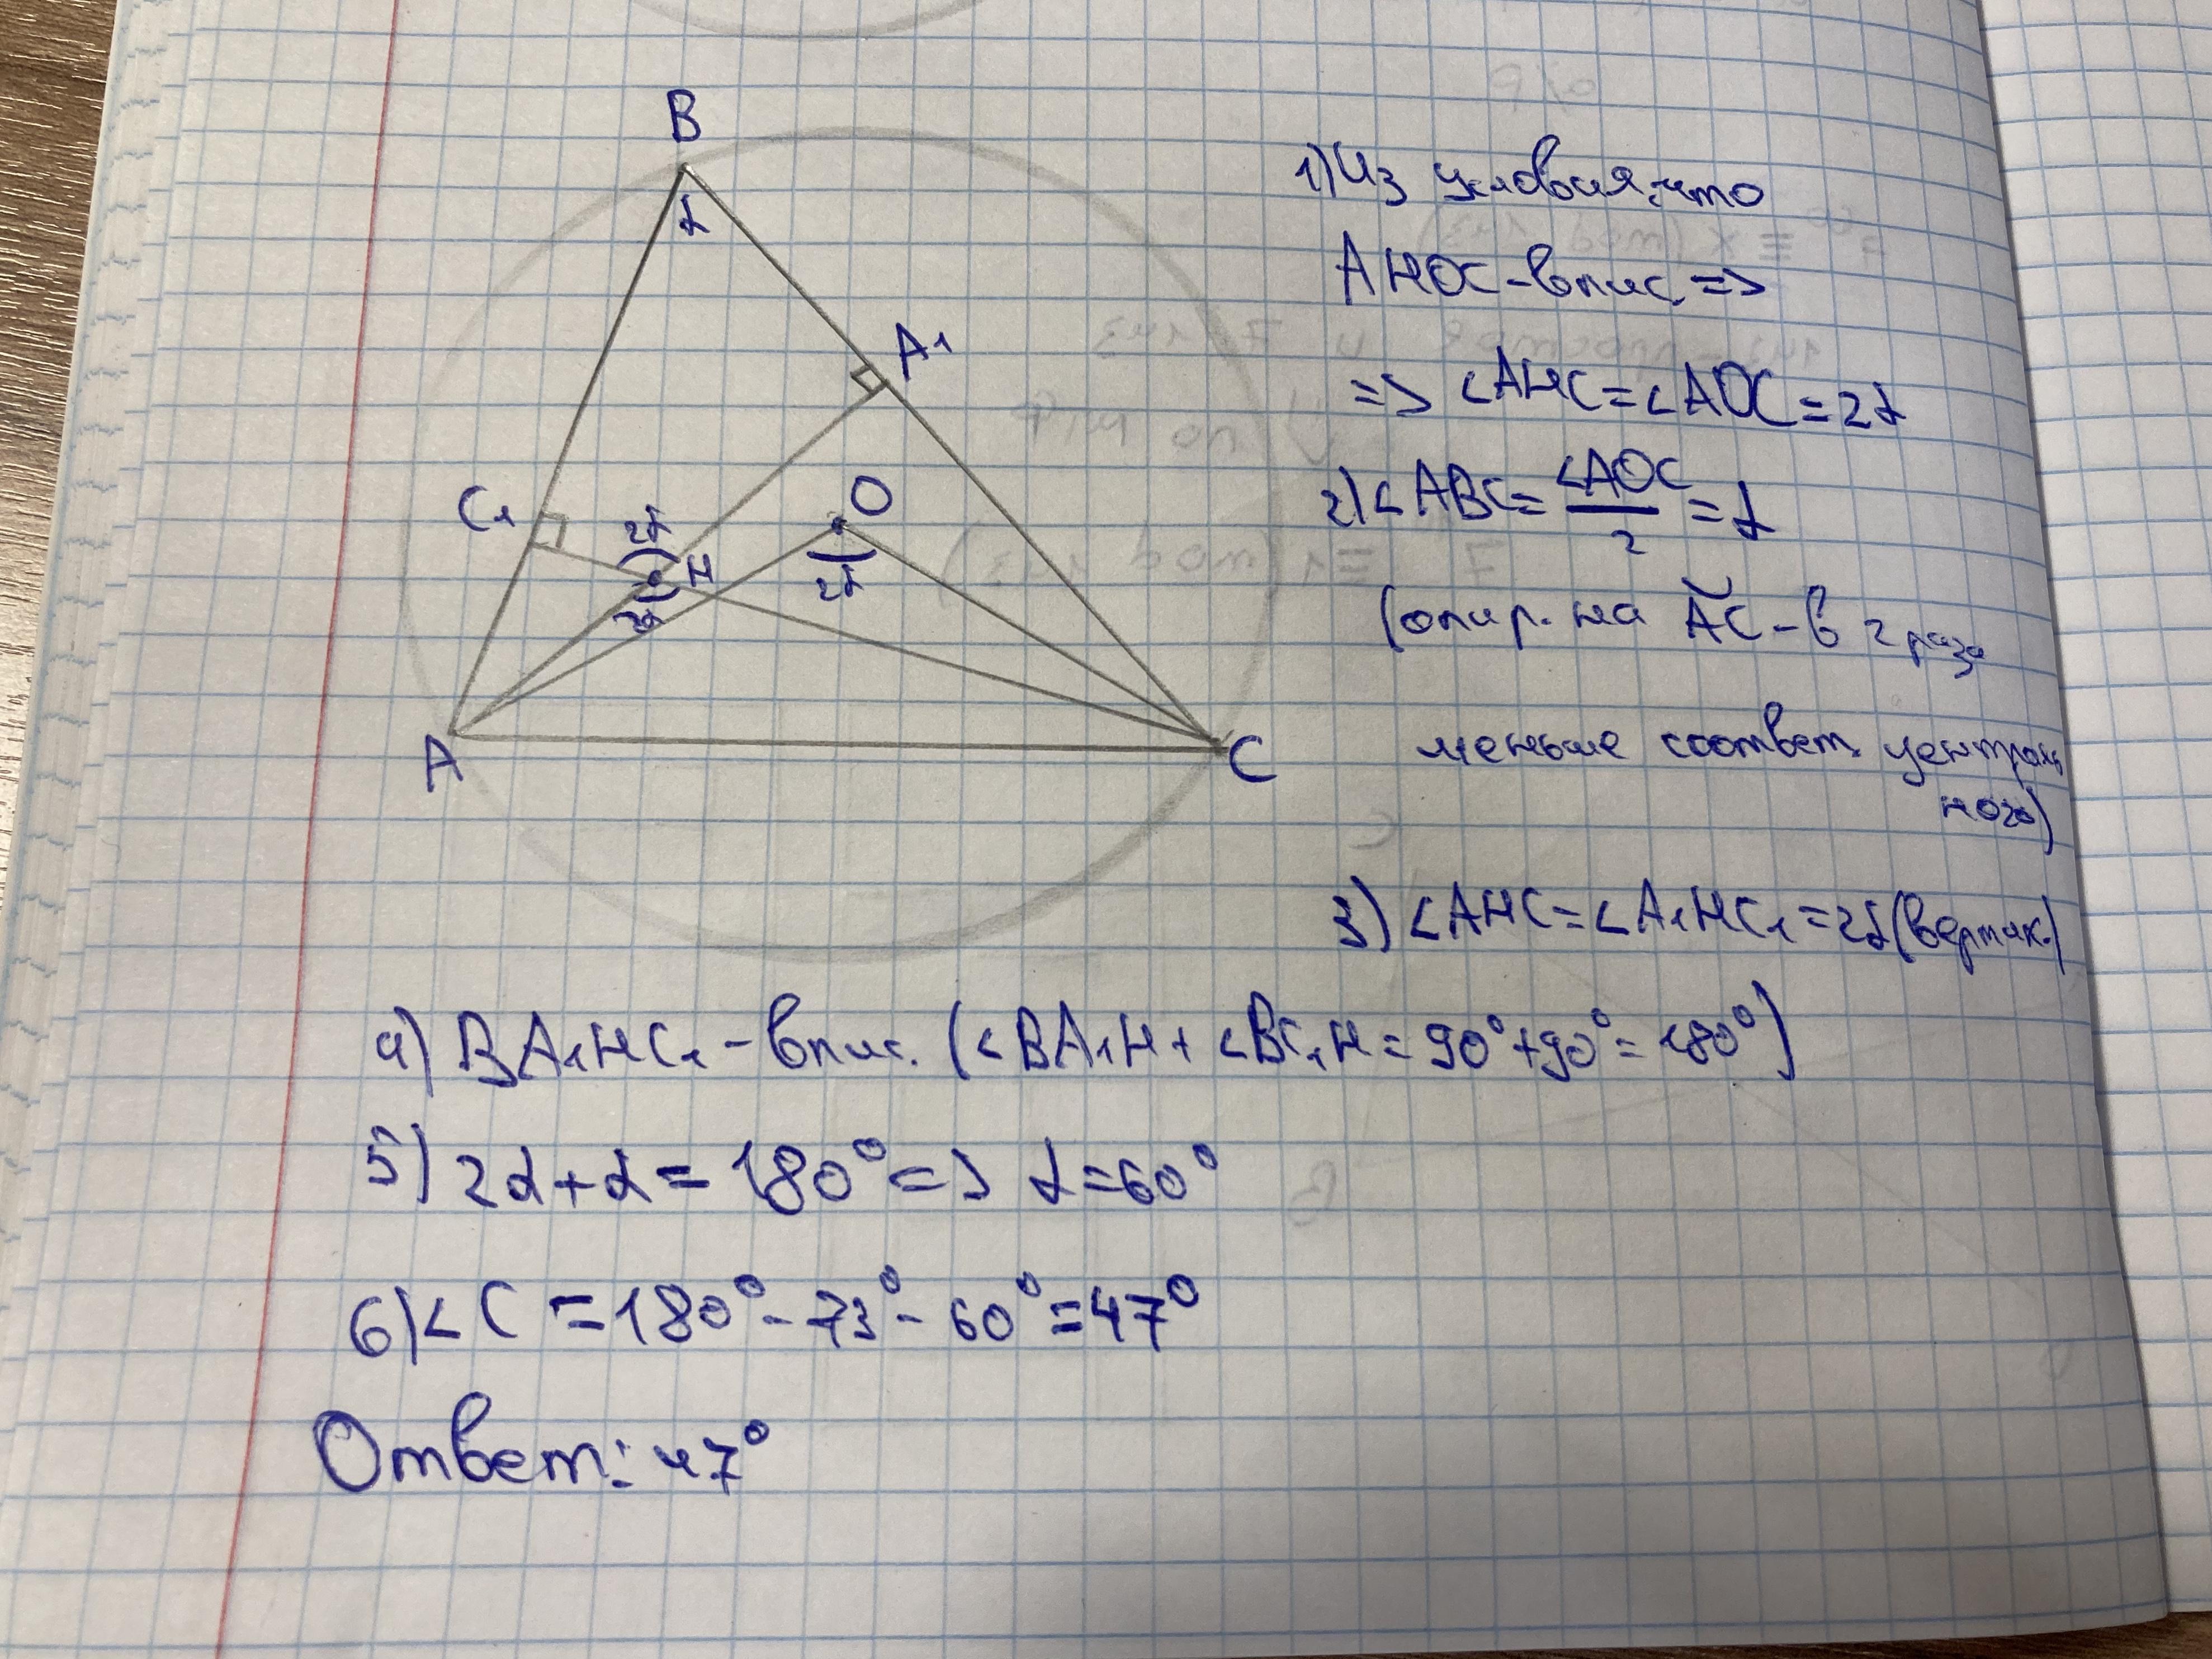 B
α
A₁
C₁
2α
H
O
2α
2α
A
C
1) Из условия, что
AHOC-впис. =>
=> ∠AHC=∠AOC=2α
2) ∠ABC= ∠AOC/2 =α
(опир. на AC-в 2 раза
меньше соответ. централь
ного)
3) ∠AHC=∠A₁HC₁=2α (вертик.)
4) BA₁HC₁-впис. (∠BA₁H+∠BC₁H=90°+90°=180°)
5) 2α+α=180° => α=60°
6) ∠C=180°-73°-60°=47°
Ответ: 47°